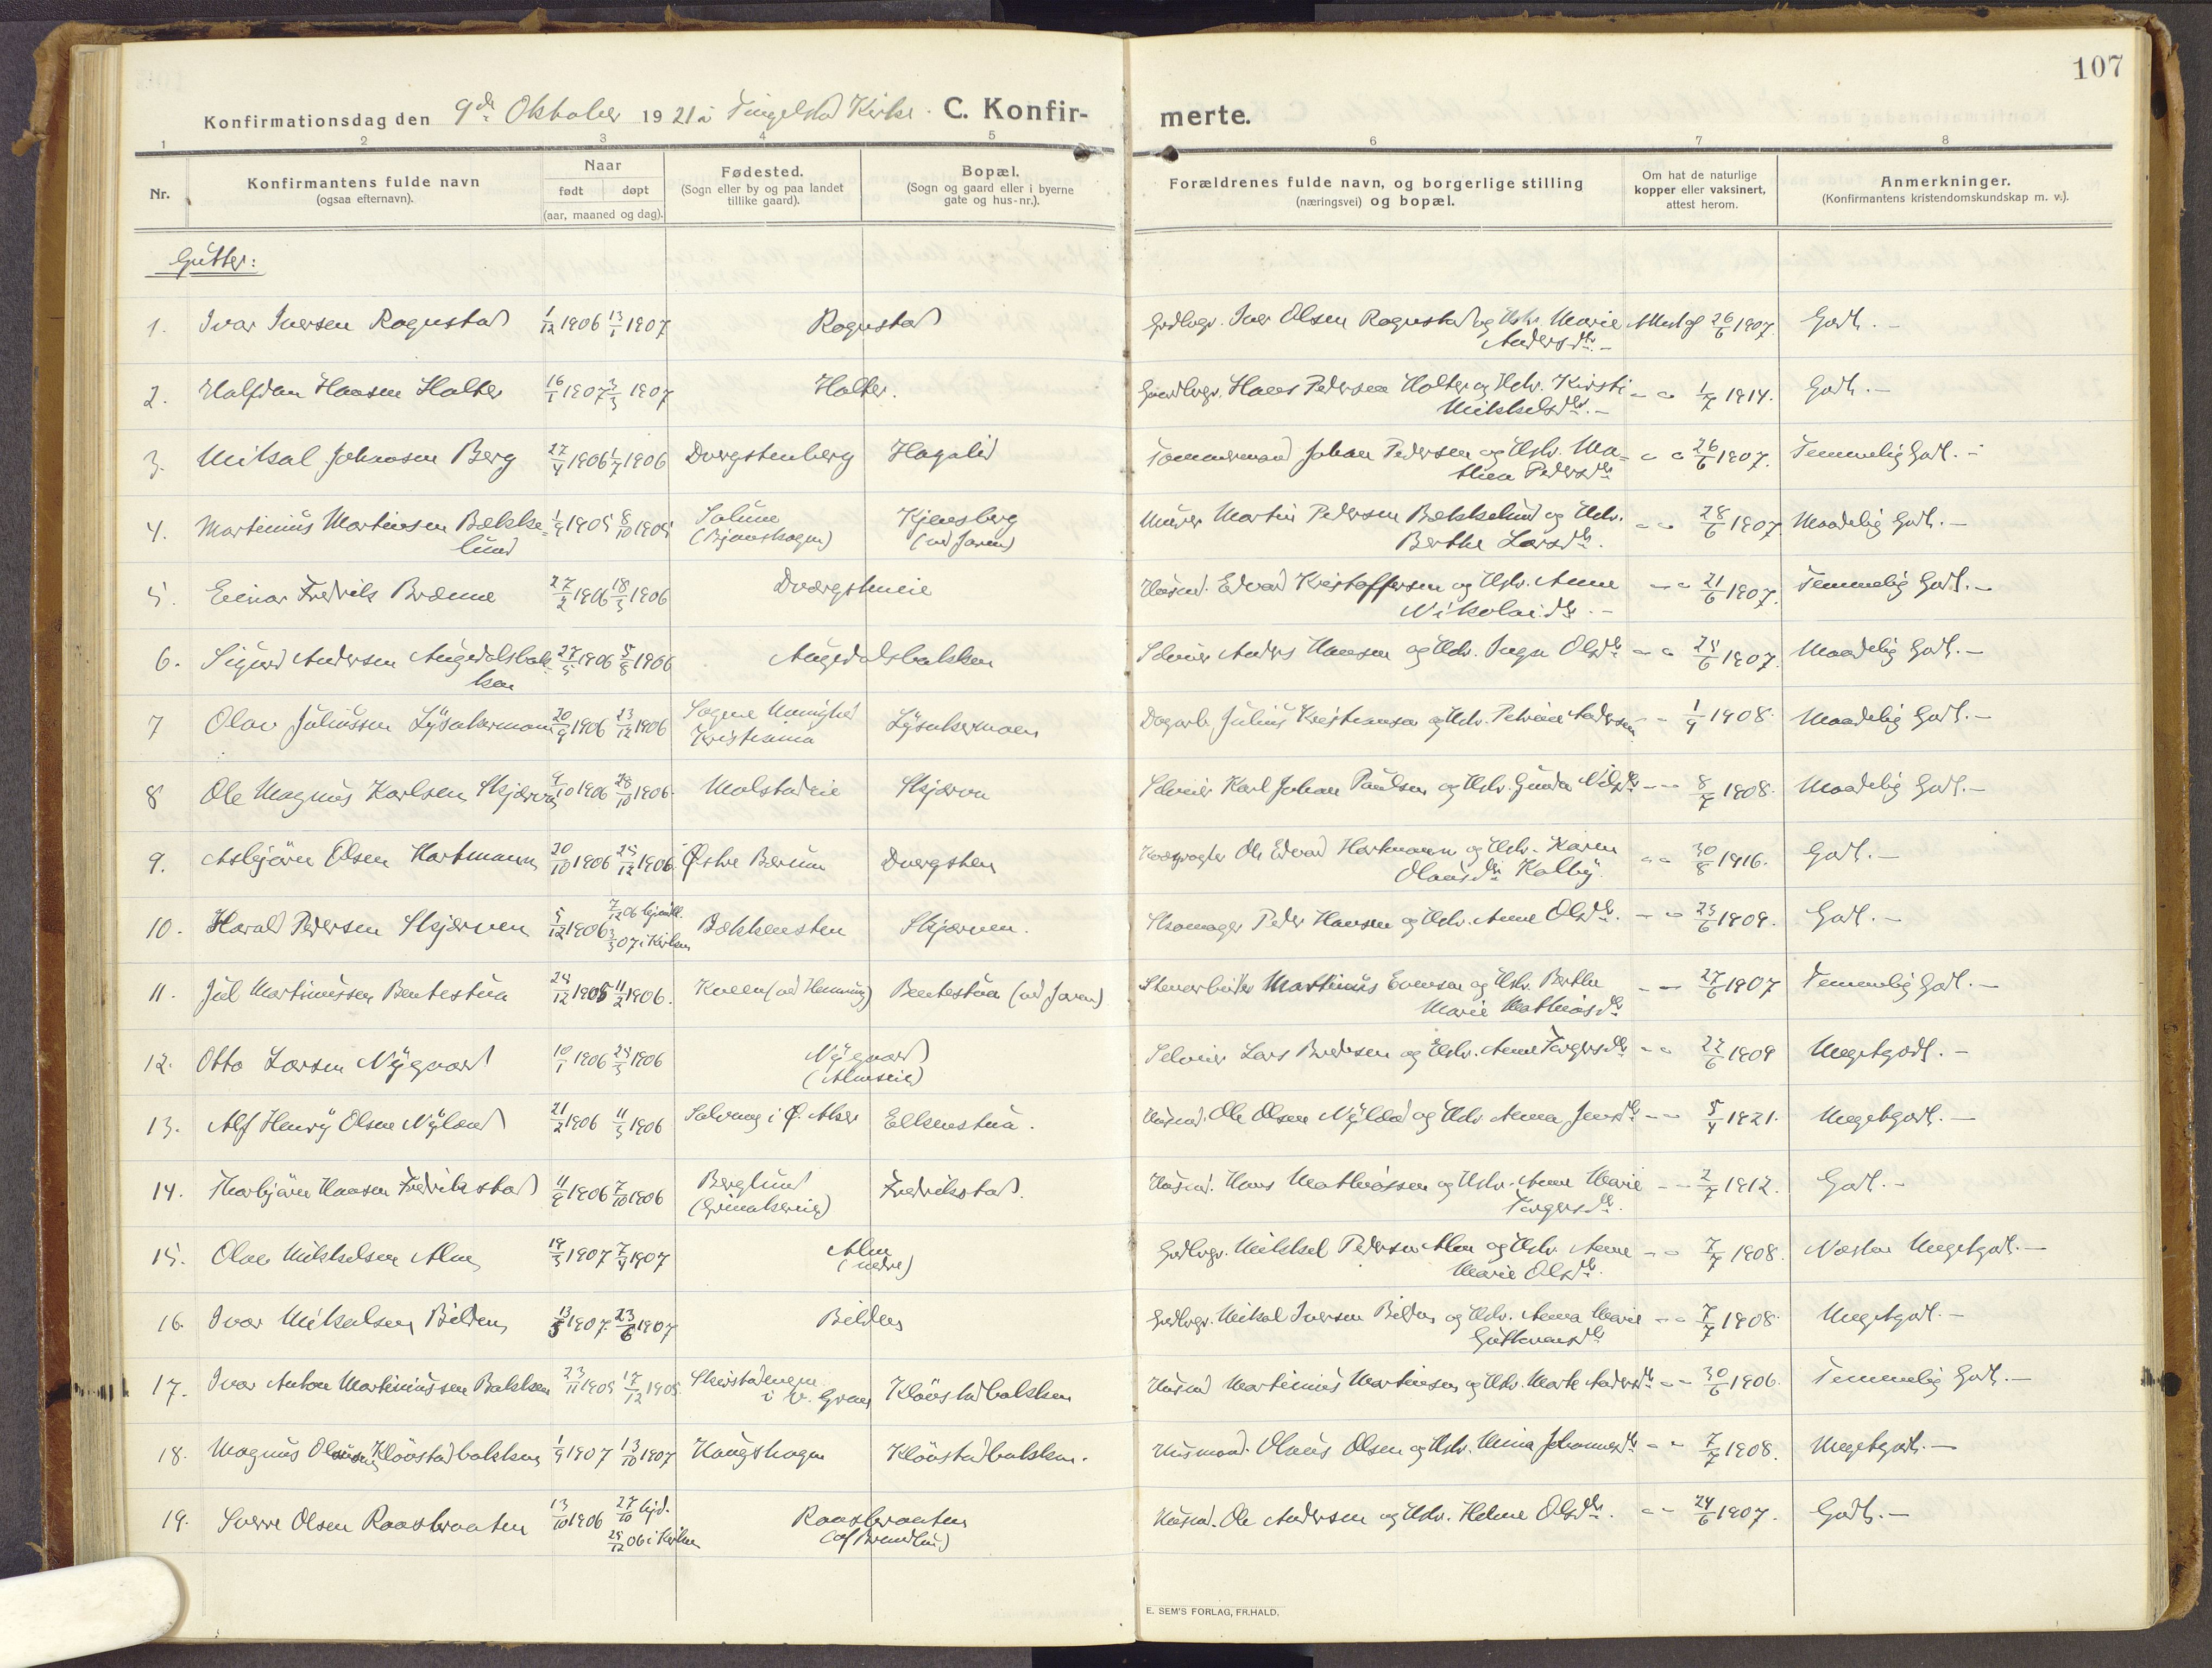 107
Konfirmationsdag den 9de Oktober 1921 i Tingelstad Kirke. C. Konfir-
merte.
1 2 3 4 5 6 7 8
Nr.
Konfirmantens fulde navn
(ogsaa efternavn).
Naar
født døpt
(aar, maaned og dag).
Fødested.
(Sogn eller by og paa landet
tillike gaard).
Bopæl.
(Sogn og gaard eller i byerne
gate og hus-nr.).
Forældrenes fulde navn, og borgerlige stilling
(næringsvei) og bopæl.
Om hat de naturlige
kopper eller vaksinert,
attest herom.
Anmerkninger.
(Konfirmantens kristendomskundskap m. v.).
Gutter:
1. Ivar Iversen Rognstad 1/12 1906 13/1 1907 Rognstad Grdbrgr. Iver Olsen Rognstad og Hstr. Marie Attest af 26/6 1907. Godt. -
Andersdtr. -
2. Halfdan Hansen Holter 16/1 1907 3/3 1907 Holter. Gaardbrgr. Hans Pedersen Holter og Hstr. Kirsti - " 1/7 1914. Godt. -
Mikkelsdtr. -
3. Mikal Johansen Berg 27/4 1906 1/7 1906 Dvergstenberg Hagalid Tømmermand Johan Pedersen og Hstr. Ma- " " 26/6 1907. Temmelig Godt. -
thea Pedersdtr
4. Martinius Martinsen Bække- 1/9 1905 8/10 1905 Solum Kjensberg Murer Martin Pedersen Bækkelund og Hstr. - " 28/6 1907 Maadelig Godt. -
lund (Bjoneskogen) (ved Jaren) Berthe Larsdtr.
5. Einar Fredrik Brænne 27/2 1906 18/3 1906 Dværgsteneie Husmd. Edvard Kristoffersen og Hstr. Anne - " 21/6 1907. Temmelig Godt. -
Nikolaidtr. -
6. Sigurd Andersen Augedalsbak- 27/5 1906 5/8 1906 Augedalsbakken Selveier Anders Hansen og Hstr. Inga Olsdtr - " 24/6 1907. Maadelig Godt. -
ken
7 Olav Juliussen Lysakermoen 20/9 1906 23/12 1906 Sogne Menighed Lysakermoen Dagarb. Julius Kristiansen og Hstr. Petrine Andersen - - 1/9 1908. Maadelig Godt. -
Kristiania
8 Ole Magnus Karlsen Skjærva 9/10 1906 28/10 1906. Molstadeie Skjærva Selveier Karl Johan Paulsen og Hstr. Gunda Nilsdtr - - 8/7 1908. Maadelig Godt. -
9. Asbjørn Olsen Hartmann 20/10 1906 25/12 1906. Østre Bærum Dvergsten Ole Edvard Hartmann og Hstr. Karen " " 30/8 1916. Godt. -
Olausdtr Kolby.
10. Harald Pedersen Skjerven 5/12 1906 7/12 06 hjemdt. Bækkensten Skjerven. Skomager Peder Hansen og Hstr. Anne Olsdtr. - " 23/6 1909. Godt. -
3/3 07 i Kirken
11. Jul Martinussen Bentestua 24/12 1905 11/2 1906. Bentestua (ved Jaren) Stenarbeider Martinius Evensen og Hstr. Berthe - - 27/6 1907 Temmelig Godt. -
Marie Mathiasdtr
12. Otto Larsen Nygaard 10/1 1906 25/3 1906 Nygaard Selveier Lars Bredesen og Hstr. Anne Torgersdtr - " 22/6 1909 Megetgodt. -
(Almseie)
13. Alf Henry Olsen Nyland 21/2 1906 11/3 1906 i Ø. Aker Elkenstua. Husmd. Ole Olsen Nyland og Hstr. Anna Jensdtr - - 5/4 1921. Megetgodt. -
14. Thorbjørn Hansen Fredrikstad 11/8 1906 7/10 1906 Berglund Fredrikstad. Husmd. Hans Mathiassen og Hstr. Anne Marie - - 2/7 1912. Godt. -
(Grinakereie) Torgersdtr.
15. Olav Mikkelsen Alm 19/3 1907 7/4 1907 Alm Grdbrgr. Mikkel Pedersen Alm og Hstr. Anne - " 7/7 1908. Næsten Megetgodt. -
(nedre) Marie Olsdtr.
16. Ivar Mikalsen Bilden 13/5 1907 23/6 1907 Bilden Grdbrgr. Mikal Iversen Bilden og Hstr. Anna Marie - " 7/7 1908. Megetgodt. -
Guttormsdtr
17. Ivar Anton Martiniussen Bakken 23/11 1905 17/12 1905 i V. Gran Kløvstadbakken Husmd Martinius Martinsen og Hstr. Marte Andersdtr " - 30/6 1906. Temmelig Godt. -
18. Magnus Olausen Kløvstadbakken 1/9 1907 13/10 1907 Haugshagen Kløvstadbakken. Husmand. Olaus Olsen og Hstr. Mina Johannesdtr - " 7/7 1908. Megetgodt. -
19. Sverre Olsen Raasbraaten 13/10 1906 27/10 hjd. Raasbraaten Husmd. Ole Andersen og Hstr. Helene Olsdtr. " - 24/6 1907. Godt. -
25/12 06 i Kirken
E. SEM'S FORLAG, FR.HALD.